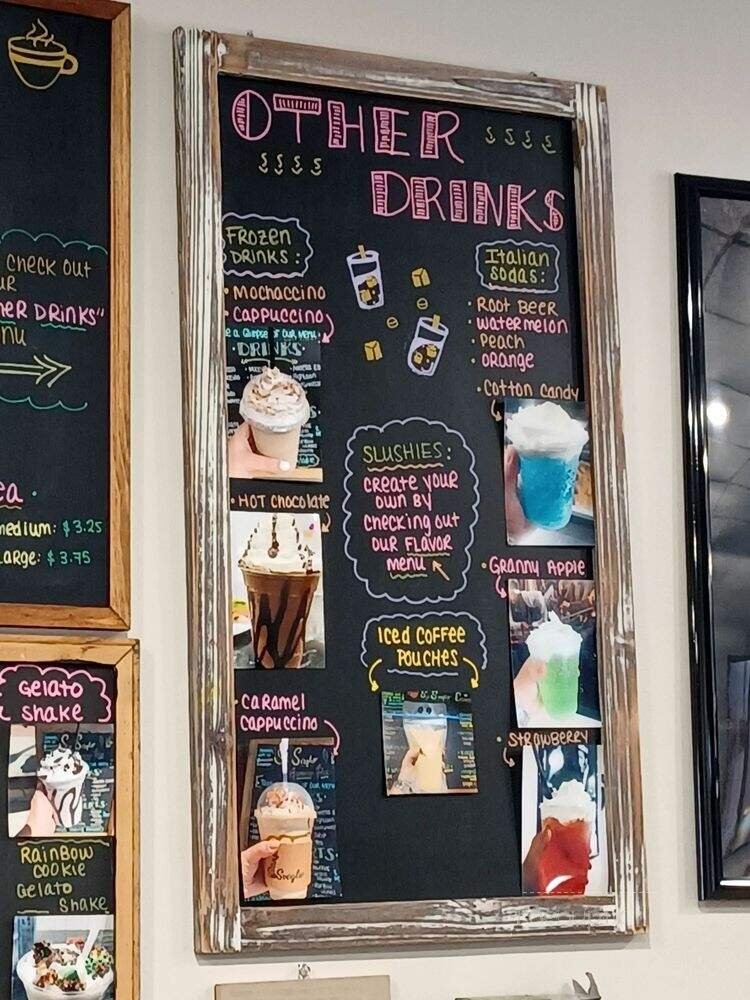 OTHER
DRINKS
FROZEN
DRINKS:
• MOCHACCINO
• CAPPUCCINO
DRINKS
• HOT CHOCOLATE
• CARAMEL
CAPPUCCINO
Italian
SODAS:
• ROOT BEER
• WATERMELON
• PEACH
• ORANGE
• COTTON CANDY
• GRANNY APPLE
• STRAWBERRY
SLUSHIES:
CREATE YOUR
OWN BY
CHECKING OUT
OUR FLAVOR
MENU
ICED COFFEE
POUCHES
CHECK OUT
DRINKS"
medium: $3.25
LARGE: $3.75
GELATO
SHAKE
RAINBOW
COOKIE
GELATO
SHAKE